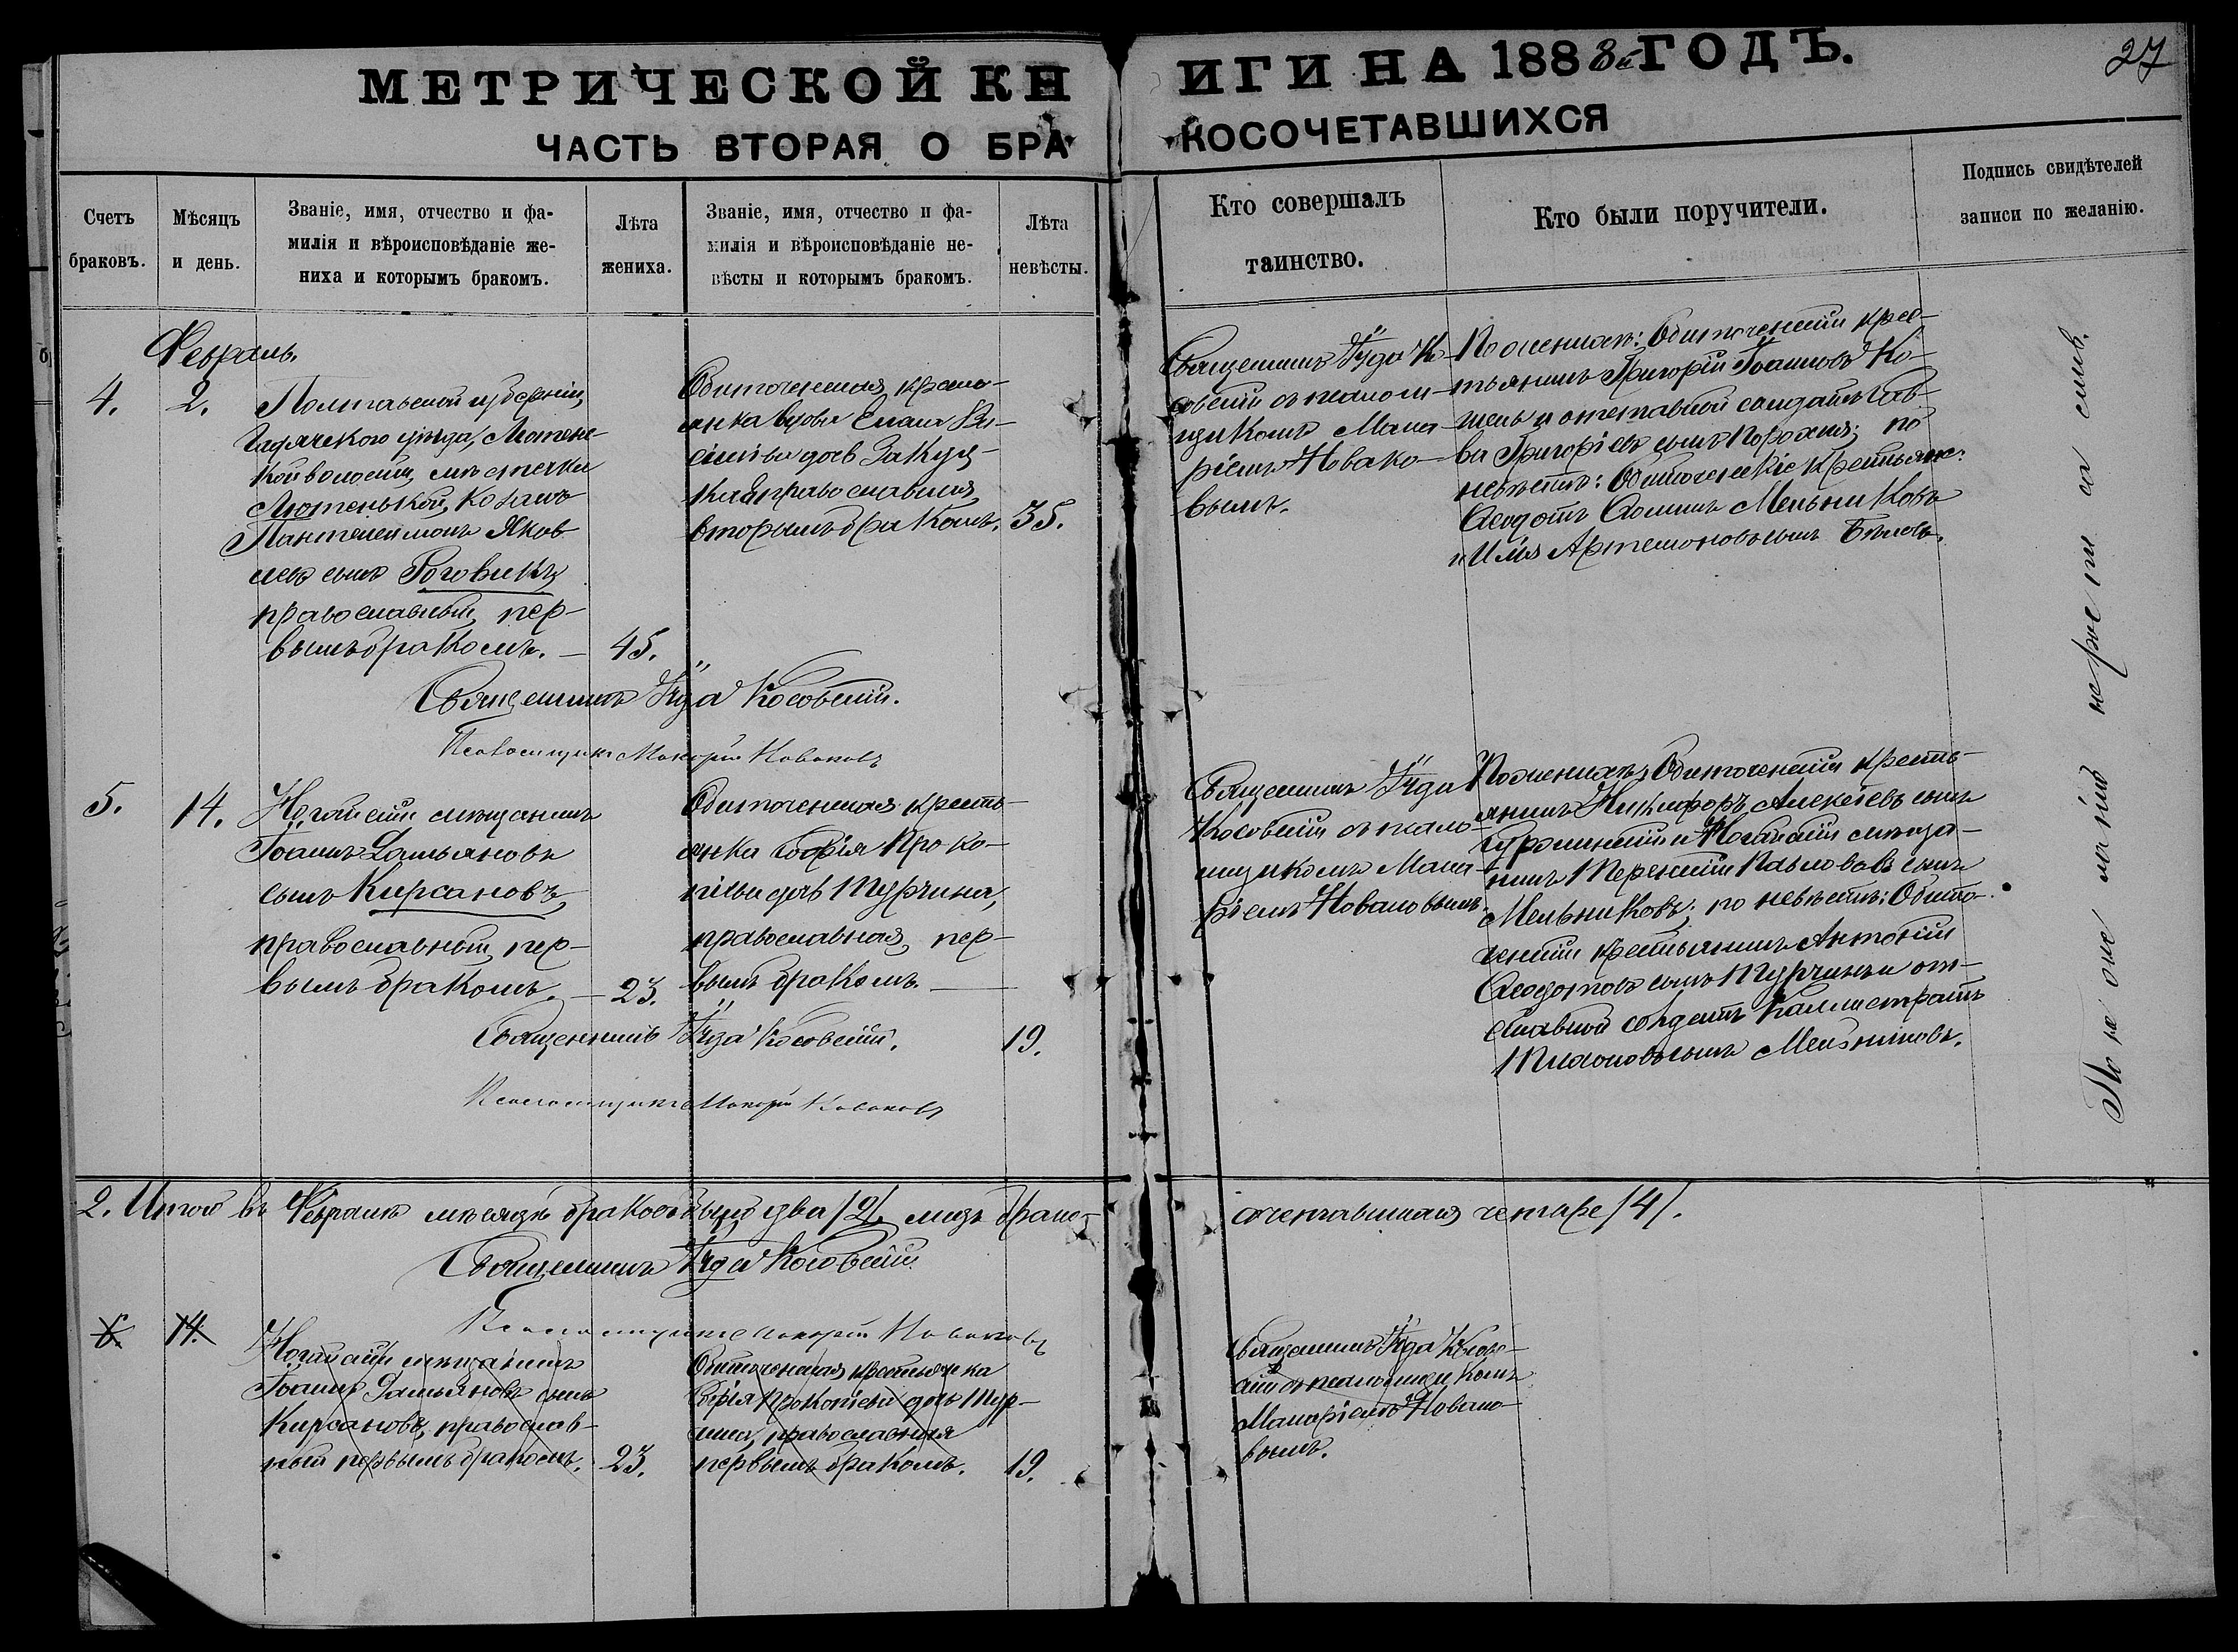 МЕТРИЧЕСКОЙ КНИГИ НА 1888й ГОДЪ.
27
ЧАСТЬ ВТОРАЯ О БРАКОСОЧЕТАВШИХСЯ
Счетъ
браковъ.
Мѣсяцъ
и день.
Званіе, имя, отчество и фа-
милія и вѣроисповѣданіе же-
ниха и которымъ бракомъ.
Лѣта
жениха.
Званіе, имя, отчество и фа-
милія и вѣроисповѣданіе не-
вѣсты и которымъ бракомъ.
Лѣта
невѣсты.
Кто совершалъ
таинство.
Кто были поручители.
Подпись свидѣтелей
записи по желанію.
Февраль.
4.
2.
Полтавской губерніи,
Гадячскаго уѣзда, Лютен-
кой волости, мѣстечка
Лютенькой, козакъ
Пантелеймонъ Яков
левъ сынъ Роговикъ,
православный, пер-
вымъ бракомъ. —
45.
Обиточенская крестья-
нка вдова Елена Ва-
сильева дочь
православная,
вторымъ бракомъ.
35.
Священникъ Іуда Ко-
совскій съ псаломщ-
щикомъ Мака-
ріемъ Новако-
вымъ.
По женихѣ: Обиточенскій крес-
тьянинъ Григорій Іоанновъ Ко-
и отставной солдатъ Сав-
ва Григорьевъ сынъ Порохня; по
невѣстѣ: Обиточенскіе крестьяне:
Ѳеодотъ Мельниковъ
и Илья Артемоновъ сынъ Бѣловъ.
Священникъ Іуда Косовскій.
Псаломщикъ Макарій Новаковъ
5.
14.
Ногайскій мѣщанинъ
Іоаннъ Дамьяновъ
сынъ Кирсановъ,
православный, пер-
вымъ бракомъ. —
23.
Обиточенская кресть-
янка Софія Проко-
піева дочь Турчина,
православная, пер-
вымъ бракомъ. —
19.
Священникъ Іуда
Косовскій съ псалом-
щикомъ Мака-
ріемъ Новаковымъ.
По женихѣ: Обиточенскій кресть-
янинъ Никифоръ Алексѣевъ сынъ
и Ногайскій мѣща-
нинъ Терентій Павловъ сынъ
Мельниковъ; по невѣстѣ: Обито-
ченскій крестьянинъ Антоній
Ѳеодотовъ сынъ Турчинъ и от-
ставной солдатъ Каллистратъ
сынъ Мельниковъ.
Священникъ Іуда Косовскій.
Псаломщикъ Макарій Новаковъ
2. Итого въ Февралѣ мѣсяцѣ бракосоч два /2/ лицъ брако-
сочетавшихся четыре /4/.
Священникъ Іуда Косовскій
Псаломщикъ Макарій Новаковъ
6.
14.
Ногайскій мѣщанинъ
Іоаннъ Дамьяновъ сынъ
Кирсановъ, православ-
ный первымъ бракомъ.
23.
Обиточенская крестьянка
Софія Прокопіева дочь Тур-
чина, православная
первымъ бракомъ.
19.
Священникъ Іуда Косов-
скій съ псаломщикомъ
Макаріемъ Новако-
вымъ.